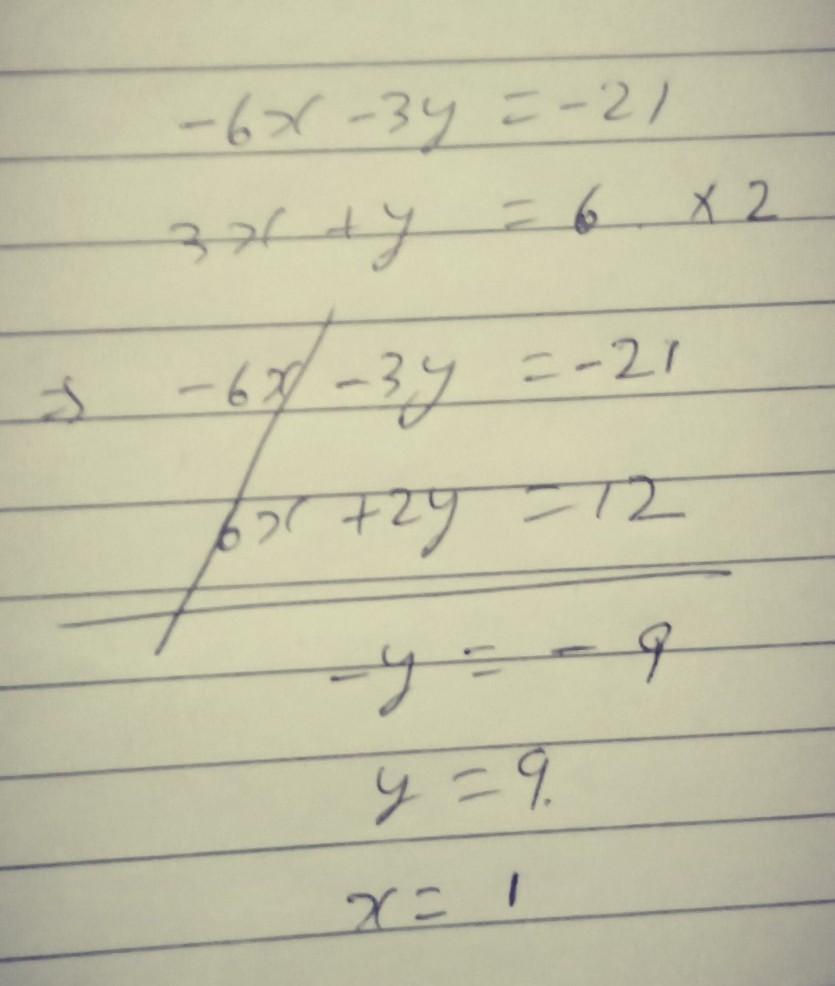 -6x -3y = -21
3x + y = 6 × 2
⇒ -6x -3y = -21
6x +2y = 12
-y = - 9
y = 9.
x = 1